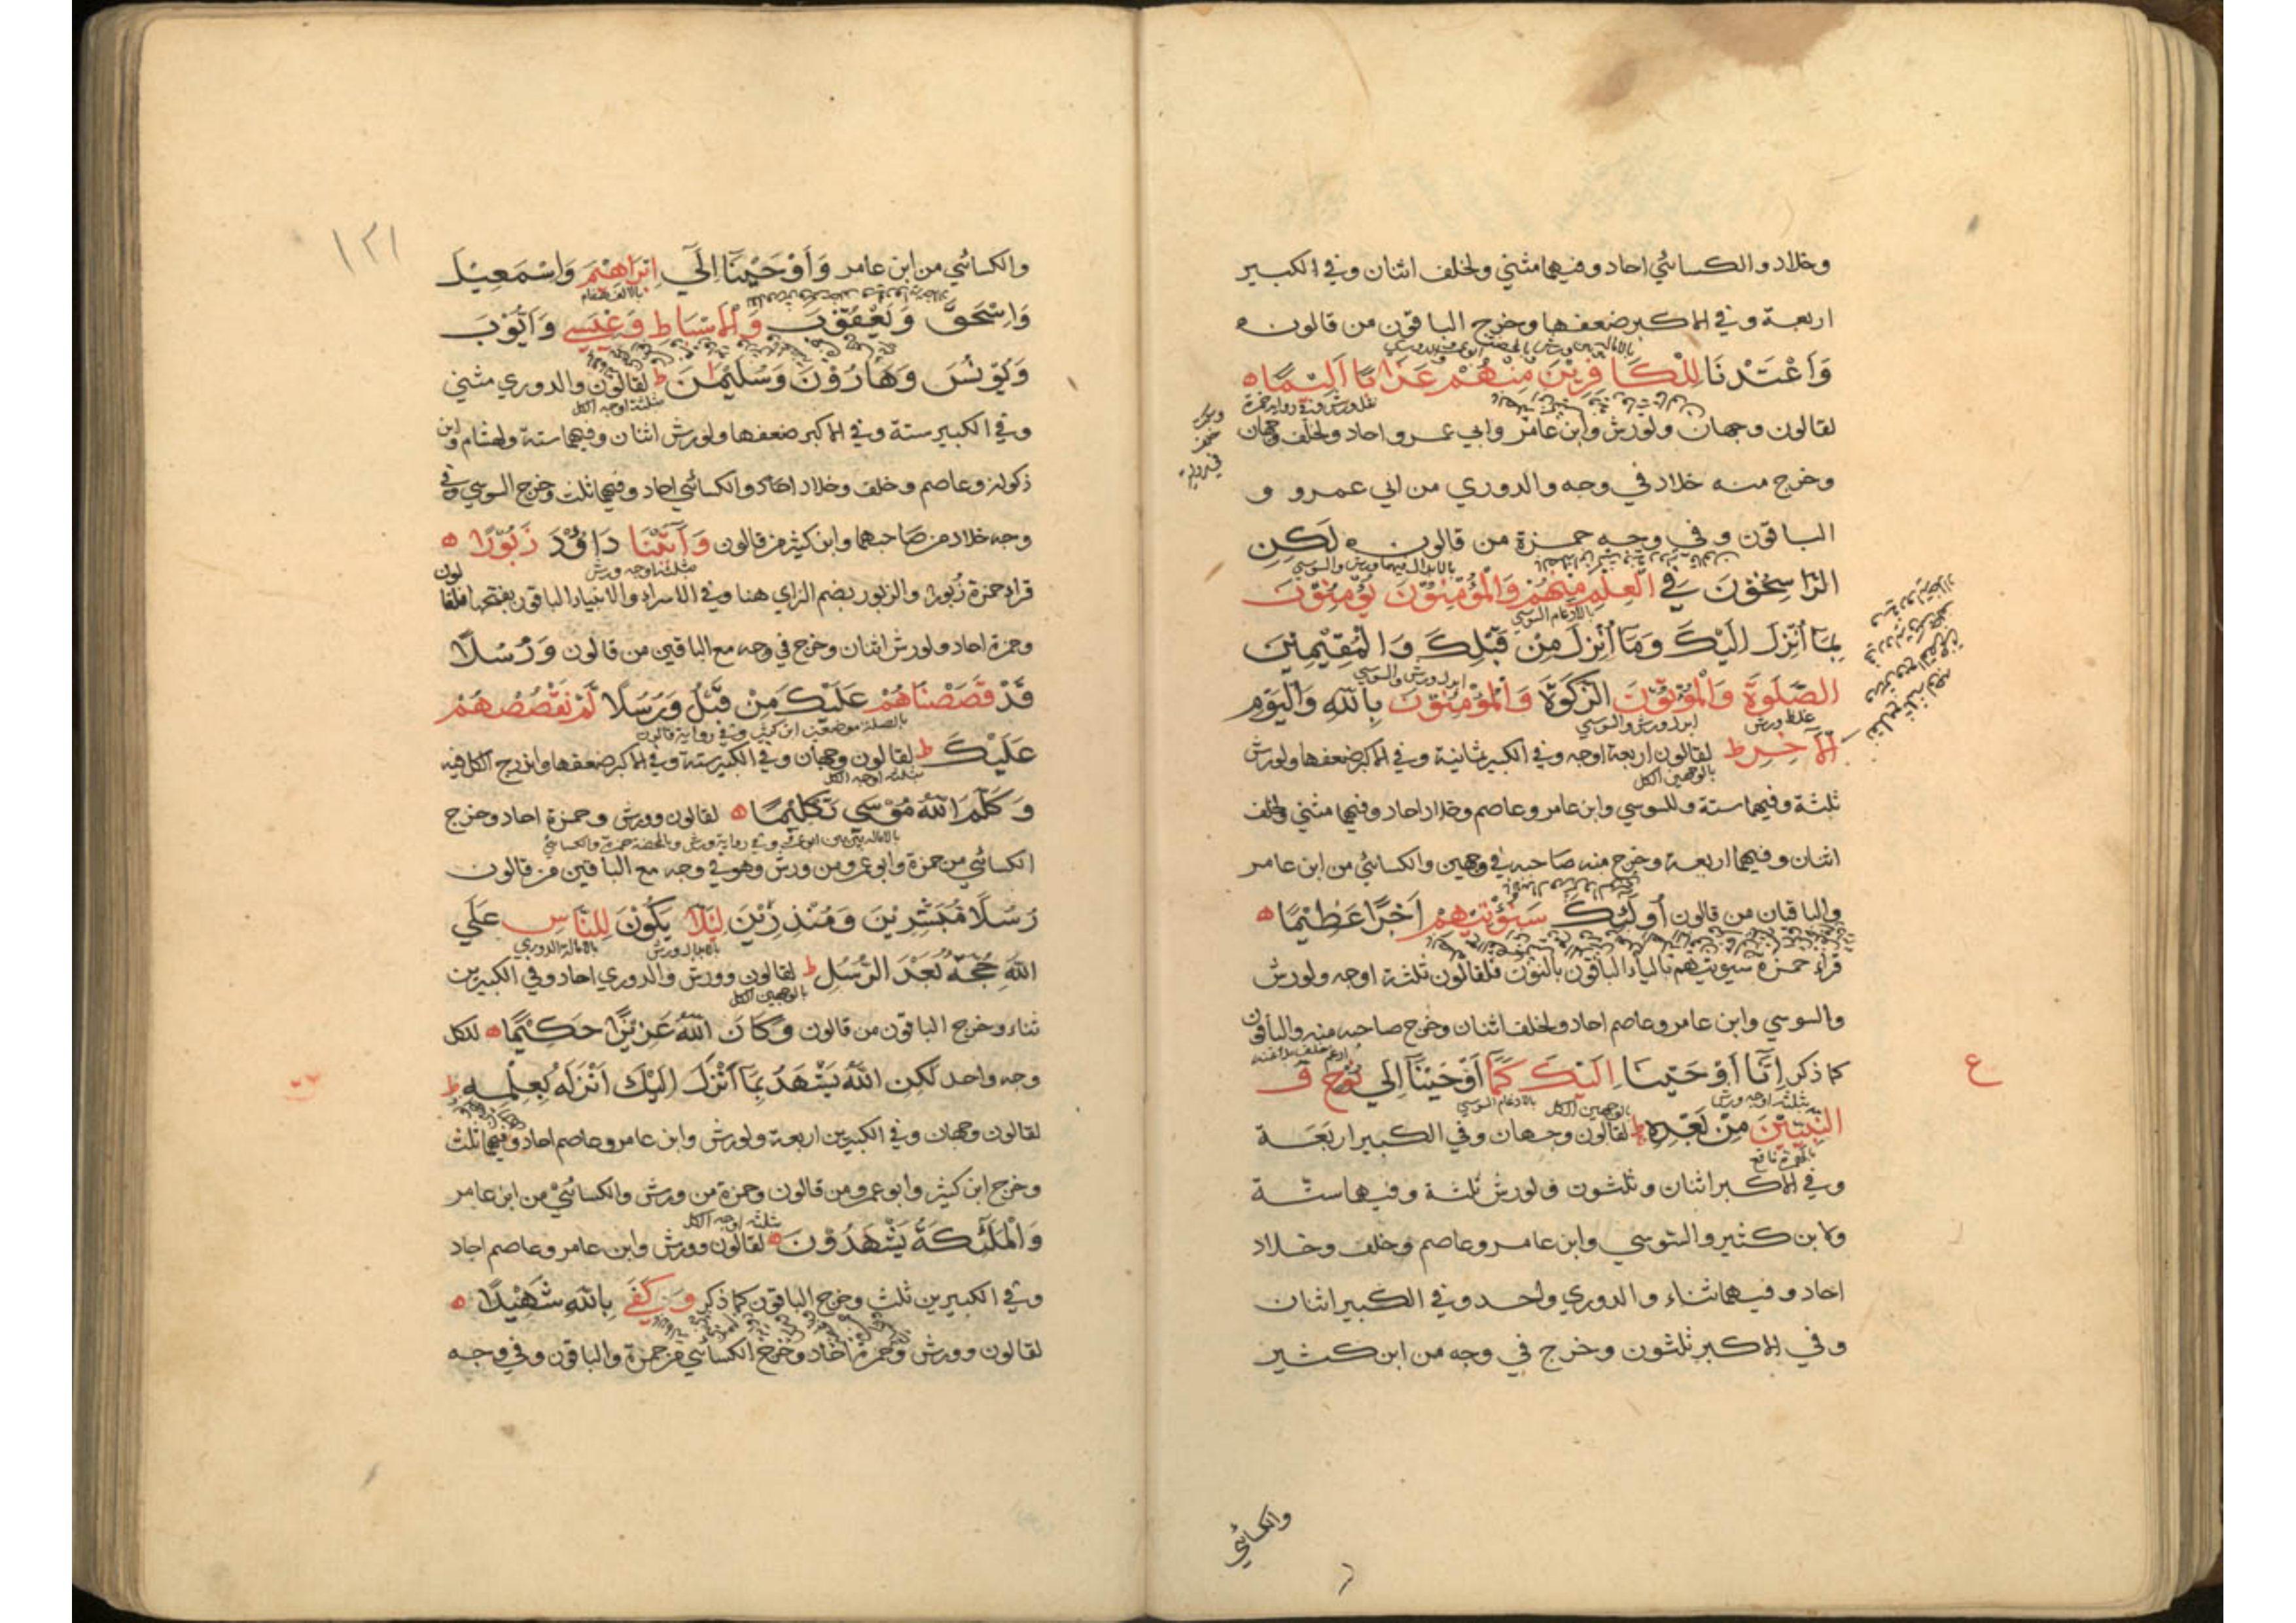 وخلاد والكسائي احاد وفيهما مثني ولخلف اثنان وفي الكبير
اربعة وفي الاكبر ضعفها وخرج الباقون من قالون
وَاَعْتَدْنَا لِلْكَافِرِيْنَ مِنْهُمْ عَذَابًا اَلِيْمًا ه
لقالون وجهان ولورش وابن عامر وابي عمرو احاد ولخلف وجهان
وخرج منه خلاد في وجه والدوري من ابي عمرو و
الباقون وفي وجه حمزة من قالون ه لَكِنِ
الرَّاسِخُوْنَ فِي الْعِلْمِ مِنْهُمْ وَالْمُؤْمِنُوْنَ يُؤْمِنُوْنَ
بالادغام السوسي
بِمَا اُنْزِلَ اِلَيْكَ وَمَا اُنْزِلَ مِنْ قَبْلِكَ وَالْمُقِيْمِيْنَ
ابدل ورش والسوسي
الصَّلَوةَ وَالْمُؤْتُوْنَ الزَّكَوةَ وَالْمُؤْمِنُوْنَ بِاللّٰهِ وَالْيَوْمِ
غلظ ورش ابدل ورش والسوسي
الْاٰخِرِ ط لقالون اربعة اوجه وفي الكبير ثمانية وفي الاكبر ضعفها ولورش
بالوجهين الكل
ثلثة وفيهما ستة وللسوسي وابن عامر وعاصم وخلاد احاد وفيهما مثني ولخلف
اثنان وفيهما اربعة وخرج منه صاحبه في وجهين والكسائي من ابن عامر
والباقان من قالون اُولٰئِكَ سَنُؤْتِيْهِمْ اَجْرًا عَظِيْمًا ه
قراء حمزة سيوتيهم بالياء الباقون بالنون فلقالون ثلثة اوجه ولورش
والسوسي وابن عامر وعاصم احاد ولخلف اثنان وخرج صاحبه منه والباقون
كما ذكر اِنَّا اَوْحَيْنَا اِلَيْكَ كَمَا اَوْحَيْنَا اِلٰي نُوْحٍ وَّ
ع
ثلثة اوجه ورش بالوجهين الكل بالادغام السوسي
النَّبِيّٖنَ مِنْ بَعْدِهٖ ط لقالون وجهان وفي الكبير اربعة
بالهمزة نافع
وفي الاكبر اثنان وثلثون ولورش ثلثة وفيهما ستة
ولابن كثير والسوسي وابن عامر وعاصم وخلف وخلاد
احاد وفيهما ثناء والدوري واحد وفي الكبير اثنان
وفي الاكبر ثلثون وخرج في وجه من ابن كثير
والكسائي
١٢١
والكسائي من ابن عامر وَاَوْحَيْنَا اِلٰي اِبْرَاهِيْمَ وَاِسْمٰعِيْلَ
بالالف هشام
وَاِسْحٰقَ وَيَعْقُوْبَ وَالْاَسْبَاطِ وَعِيْسٰي وَاَيُّوْبَ
وَيُوْنُسَ وَهَارُوْنَ وَسُلَيْمٰنَ ط لقالون والدوري مثني
ثلثة اوجه الكل
وفي الكبير ستة وفي الاكبر ضعفها ولورش اثنان وفيهما ستة ولهشام وابن
ذكوان وعاصم وخلف وخلاد احاد والكسائي احاد وفيهما ثلث وخرج السوسي وفي
وجه خلاد من صاحبهما وابن كثير من قالون وَاٰتَيْنَا دَاوٗدَ زَبُوْرًا ه
قراء حمزة زُبورا والزبور بضم الزاي هنا وفي الاسراء والانبياء الباقون بفتحها فلقالون
وحمزة احاد ولورش اثنان وخرج في وجه مع الباقين من قالون وَرُسُلًا
قَدْ قَصَصْنَاهُمْ عَلَيْكَ مِنْ قَبْلُ وَرُسُلًا لَّمْ نَقْصُصْهُمْ
بالصلة موضعين ابن كثير وفي رواية قالون
عَلَيْكَ ط لقالون وجهان وفي الكبير ستة وفي الاكبر ضعفها واندرج الكل فيه
ثلثة اوجه الكل
وَكَلَّمَ اللّٰهُ مُوْسٰي تَكْلِيْمًا ه لقالون وورش وحمزة احاد وخرج
الكسائي من حمزة وابو عمرو من ورش وهو في وجه مع الباقين من قالون
رُسُلًا مُّبَشِّرِيْنَ وَمُنْذِرِيْنَ لِئَلَّا يَكُوْنَ لِلنَّاسِ عَلَي
بالابدال ورش بالامالة الدوري
اللّٰهِ حُجَّةٌ بَعْدَ الرُّسُلِ ط لقالون وورش والدوري احاد وفي الكبيرين
بالوجهين الكل
ثناء وخرج الباقون من قالون وَكَانَ اللّٰهُ عَزِيْزًا حَكِيْمًا ه للكل
وجه واحد لٰكِنِ اللّٰهُ يَشْهَدُ بِمَا اَنْزَلَ اِلَيْكَ اَنْزَلَهٗ بِعِلْمِهٖ ط
لقالون وجهان وفي الكبيرين اربعة ولورش وابن عامر وعاصم احاد وفيهما ثلث
وخرج ابن كثير وابو عمرو من قالون وحمزة من ورش والكسائي من ابن عامر
ثلثة اوجه الكل
وَالْمَلٰئِكَةُ يَشْهَدُوْنَ ه لقالون وورش وابن عامر وعاصم احاد
وفي الكبيرين ثلث وخرج الباقون كما ذكر وَكَفٰي بِاللّٰهِ شَهِيْدًا ه
لقالون وورش وحمزة احاد وخرج الكسائي من حمزة والباقون وفي وجه